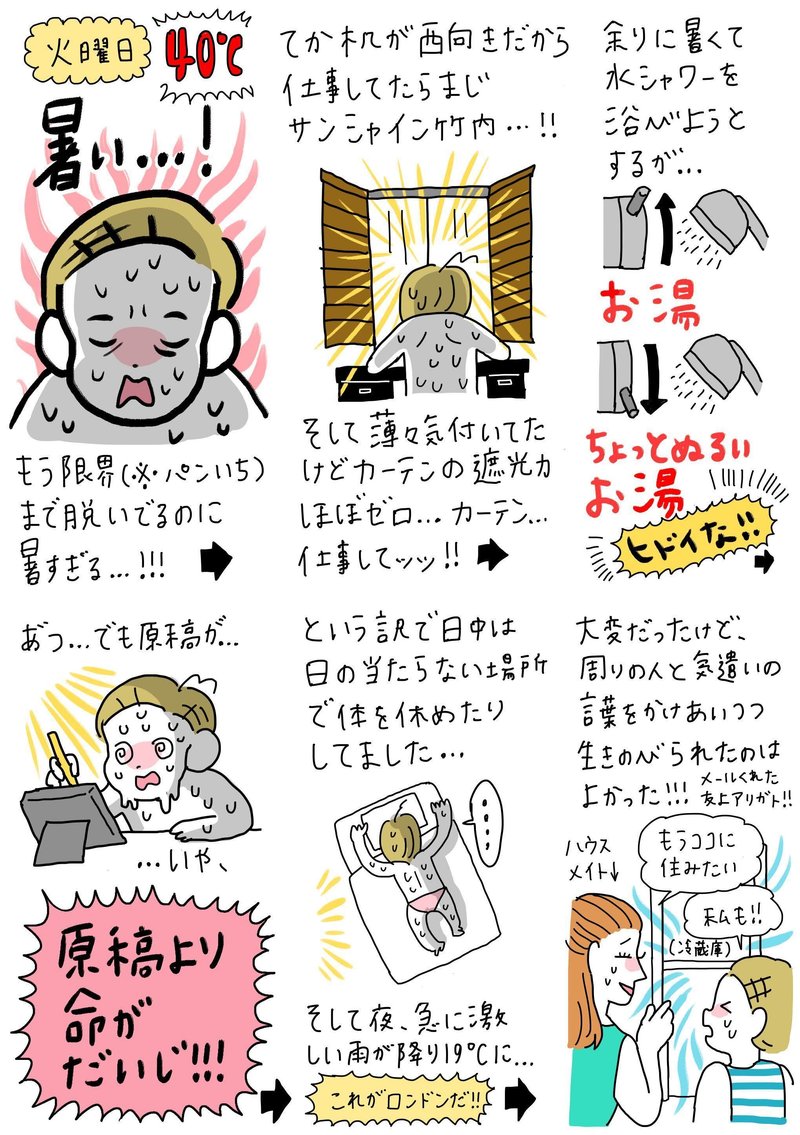 火曜日
40℃
暑い…!
もう限界(※パンいち)
まで脱いでるのに
暑すぎる…!!!
てか机が西向きだから
仕事してたらまじ
サンシャイン竹内…!!
そして薄々気付いてた
けどカーテンの遮光力
ほぼゼロ…カーテン…
仕事してッッ!!
余りに暑くて
水シャワーを
浴びようと
するが…
お湯
ちょっとぬるい
お湯
ヒドイな!!
あっ…でも原稿が…
…いや、
原稿より
命が
だいじ!!!
という訳で日中は
日の当たらない場所
で体を休めたり
してました…
そして夜、急に激
しい雨が降り19℃に…
これがロンドンだ!!
大変だったけど、
周りの人と気遣いの
言葉をかけあいつつ
生きのびられたのは
よかった!!!
メールくれた
友よアリガト!!
ハウス
メイト↓
もうココに
住みたい
私も!!
(冷蔵庫)